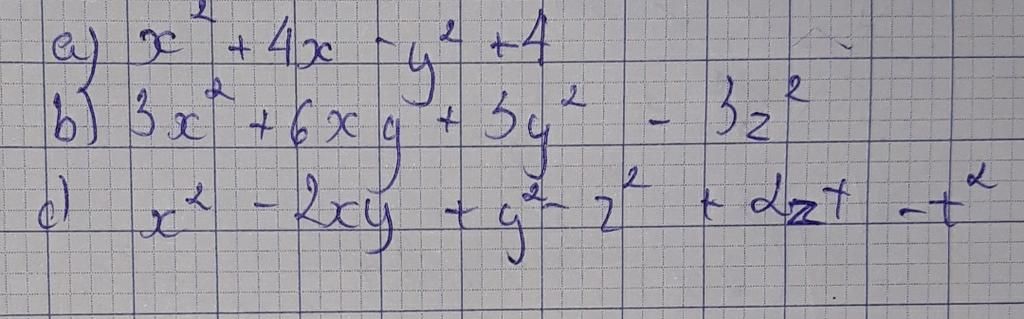 a) x² + 4x - y² + 4
b) 3x² + 6xy + 3y² - 3z²
c) x² - 2xy + y² - z² + 2zt - t²